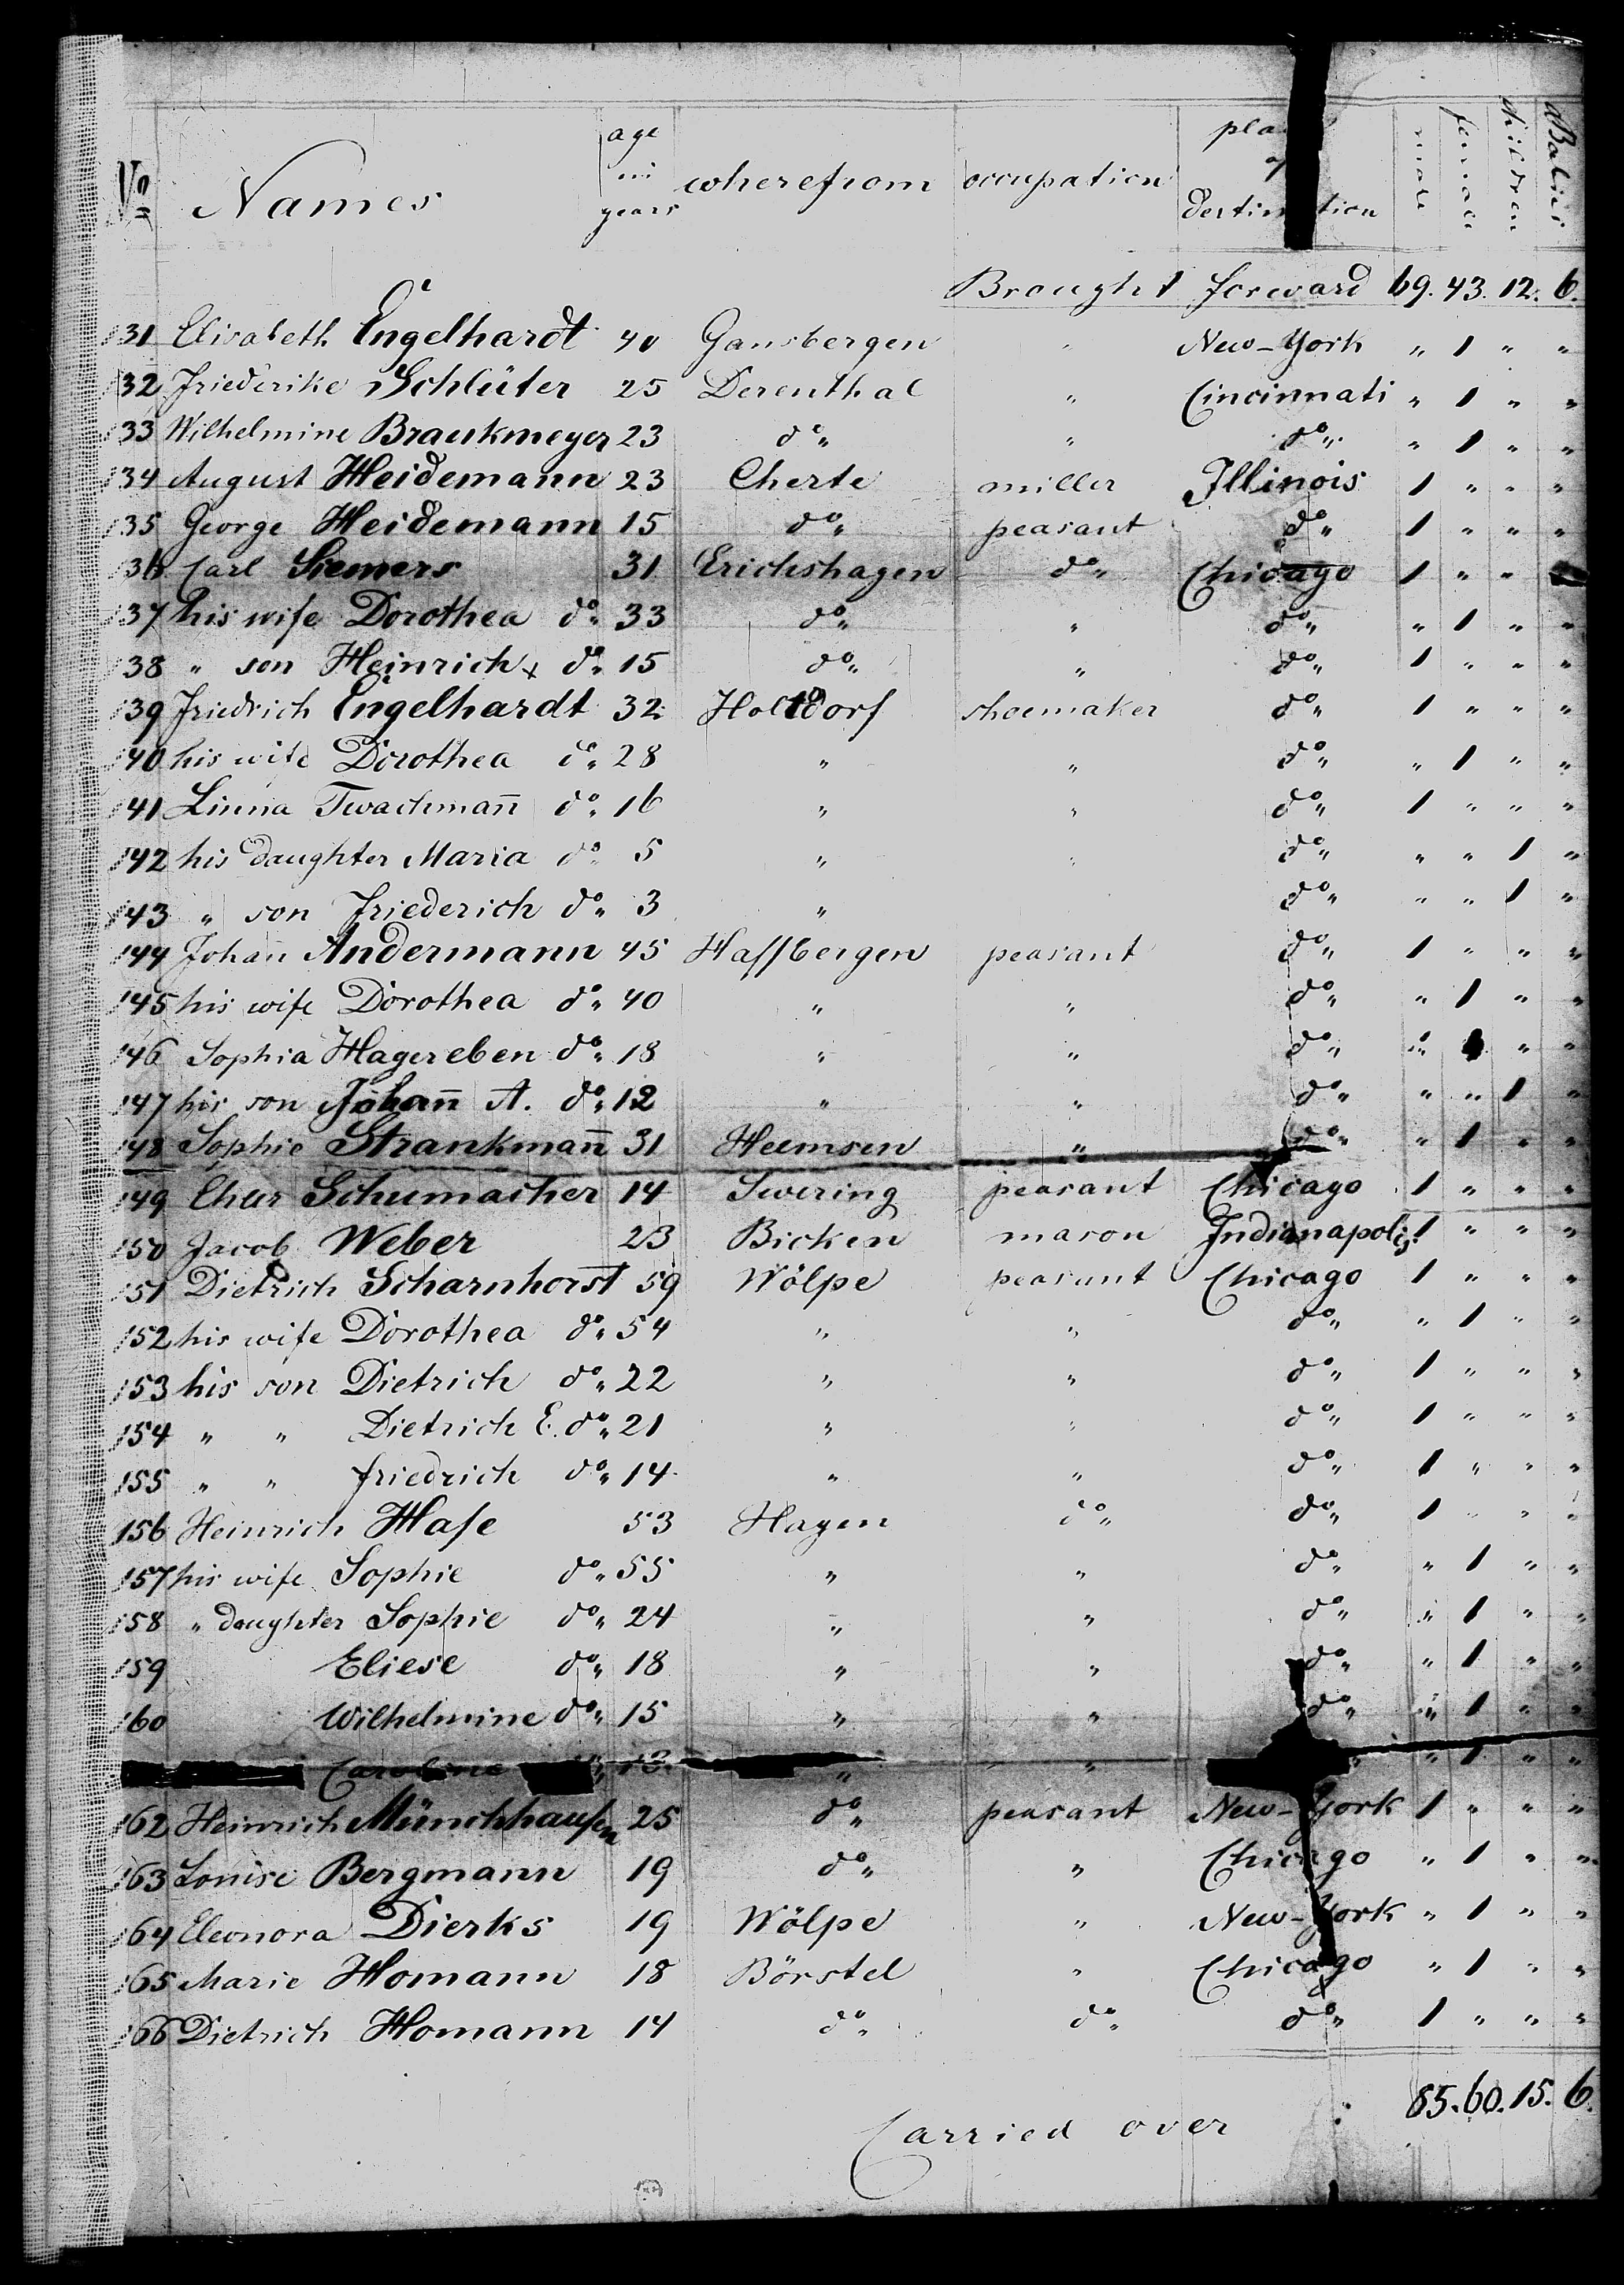 No Names age in years wherefrom occupation place of destination male female children Babies
Brought forward 69. 43. 12. 6.
131 Elisabeth Engelhardt 40 Gansbergen " New-York " 1 " "
132 Friederike Schlüter 25 Derenthal " Cincinnati " 1 " "
133 Wilhelmine Braukmeyer 23 do " " do " " 1 " "
134 August Heidemann 23 Cherte miller Illinois 1 " " "
135 George Heidemann 15 do " peasant do " 1 " " "
136 Carl Siemers 31 Erichshagen do " Chicago 1 " "
137 his wife Dorothea do " 33 do " " do " " 1 " "
138 " son Heinrich + do " 15 do " " do " 1 " " "
139 Friedrich Engelhardt 32 Holtdorf shoemaker do " 1 " " "
140 his wife Dorothea do " 28 " " do " " 1 " "
141 Linna Twachman̄ do " 16 " " do " 1 " " "
142 his daughter Maria do " 5 " " do " " " 1 "
143 " son Friederich do " 3 " do " " " 1 "
144 Johan̄ Andermann 45 Haffbergen peasant do " 1 " " "
145 his wife Dorothea do " 40 " " do " " 1 " "
146 Sophia Hagereben do " 18 " " do " " 1 " "
147 his son Johan̄ A. do " 12 " " do " " " 1 "
148 Sophie Strankman̄ 31 Heemsen " do " " 1 " "
149 Schumacher 14 Swering peasant Chicago 1 " " "
150 Jacob Weber 23 Bicken mason Indianapolis 1 " " "
151 Dietrich Scharnhorst 59 Wölpe peasant Chicago 1 " " "
152 his wife Dorothea do " 54 " " do " " 1 " "
153 his son Dietrich do " 22 " " do " 1 " " "
154 " " Dietrich E. do " 21 " " do " 1 " " "
155 " " friedrich do " 14 " " do " 1 " " "
156 Heinrich Hase 53 Hagen do " do " 1 " " "
157 his wife Sophie do " 55 " " do " " 1 " "
158 " daughter Sophie do " 24 " " do " " 1 " "
159 Eliese do " 18 " " do " " 1 " "
160 Wilhelmine do " 15 " " do " " 1 " "
Caroline 13 " " " " 1 " "
162 Heinrich Münchhausen 25 do " peasant New-York 1 " " "
163 Louise Bergmann 19 do " " Chicago " 1 " "
164 Eleonora Dierks 19 Wölpe " New-York " 1 " "
165 Marie Homann 18 Börstel " Chicago " 1 " "
166 Dietrich Homann 14 do " do " do " 1 " " "
Carried over : 85. 60. 15. 6.